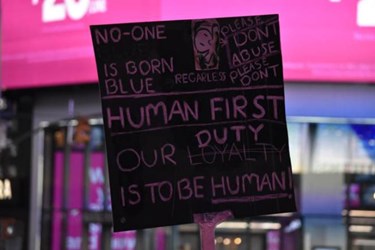 NO-ONE
IS BORN
BLUE
REGARLESS
PLEASE
DONT
ABUSE
PLEASE
DONT
HUMAN FIRST
DUTY
OUR LOYALTY
IS TO BE HUMAN!